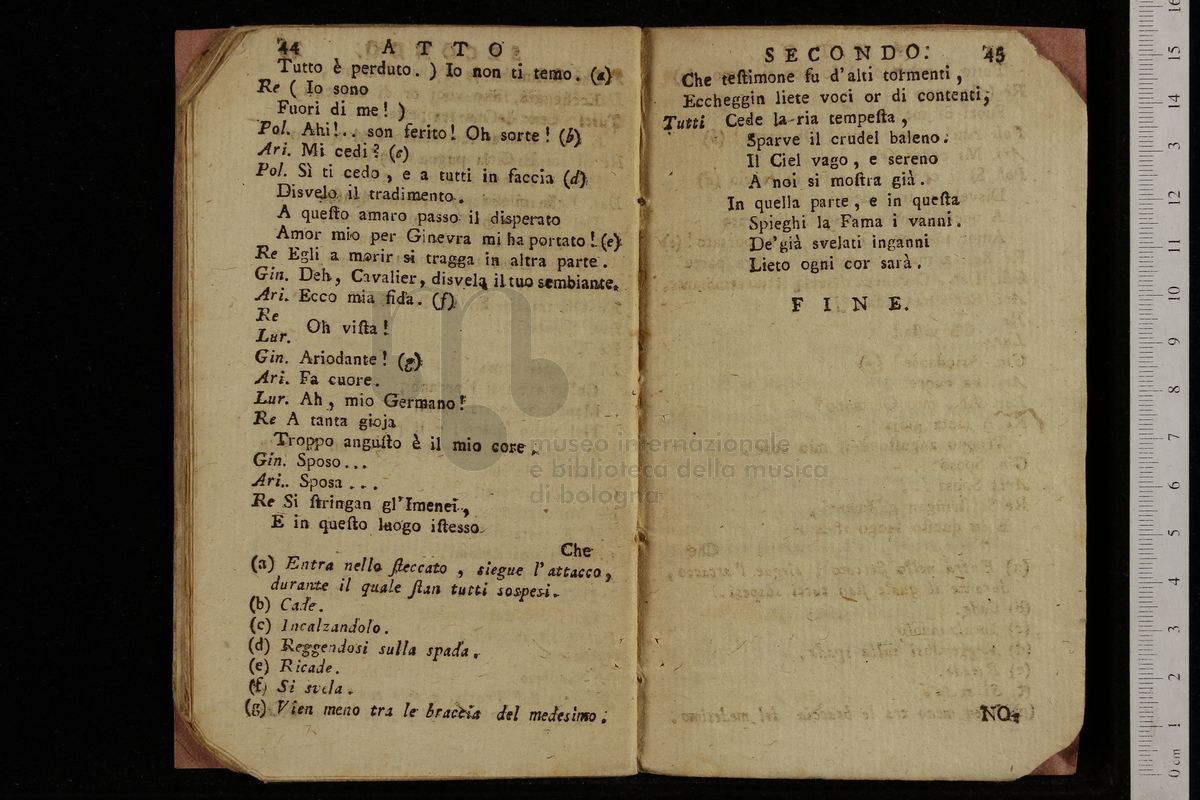 44 ATTO
Tutto è perduto. ) Io non ti temo. (a)
Re ( Io sono
Fuori di me! )
Pol. Ahi!.. son ferito! Oh sorte! (b)
Ari. Mi cedi? (c)
Pol. Sì ti cedo, e a tutti in faccia (d)
Disvelo il tradimento.
A queſto amaro passo il disperato
Amor mio per Ginevra mi ha portato! (e)
Re Egli a morir si tragga in altra parte.
Gin. Deh, Cavalier, disvela il tuo sembiante.
Ari. Ecco mia fida. (f)
Re
Lur. Oh viſta!
Gin. Ariodante! (g)
Ari. Fa cuore.
Lur. Ah, mio Germano!
Re A tanta gioja
Troppo anguſto è il mio core.
Gin. Sposo...
Ari. Sposa...
Re Si ſtringan gl'Imenei,
E in queſto luogo iſtesso
Che
(a) Entra nello ſteccato, siegue l'attacco,
durante il quale ſtan tutti sospesi.
(b) Cade.
(c) Incalzandolo.
(d) Reggendosi sulla spada.
(e) Ricade.
(f) Si svela.
(g) Vien meno tra le braccia del medesimo.
SECONDO. 45
Che teſtimone fu d'alti tormenti,
Eccheggin liete voci or di contenti;
Tutti Cede la ria tempeſta,
Sparve il crudel baleno.
Il Ciel vago, e sereno
A noi si moſtra già.
In quella parte, e in queſta
Spieghi la Fama i vanni.
De'già svelati inganni
Lieto ogni cor sarà.
FINE.
NO-
museo internazionale
e biblioteca della musica
di bologna
0 cm 1 2 3 4 5 6 7 8 9 10 11 12 13 14 15 16